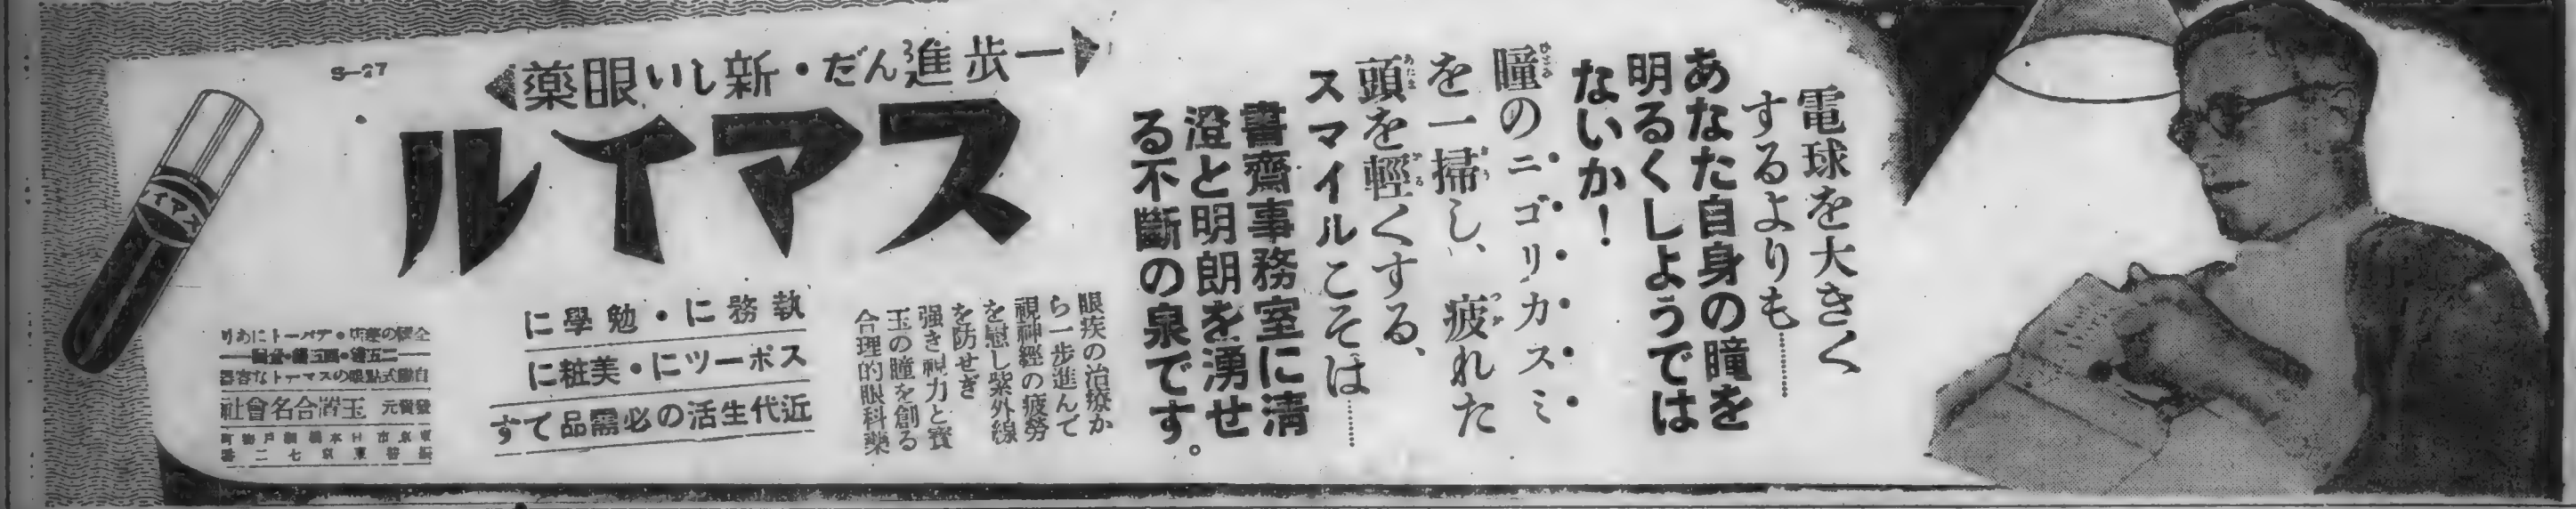 電球を大きく
するよりも………
あなた自身の瞳を
明るくしようでは
ないか！
瞳のニゴリカスミ
を一掃し、疲れた
頭を輕くする、
スマイルこそは………
書齋事務室に清
澄と明朗を湧せ
る不斷の泉です。
一歩進んだ・新しい眼薬
スマイル
S-27
眼疾の治療か
ら一歩進んで
視神經の疲勞
を慰し紫外線
を防せぎ
强き視力と寶
玉の瞳を創る
合理的眼科藥
執務に・勉學に
スポーツに・美粧に
近代生活の必需品てす
スマイ
全國の藥店・デパートにあり
自働式點眼のスマートな容器
發賣元 玉置合名會社
東京市日本橋區
振替東京七二番